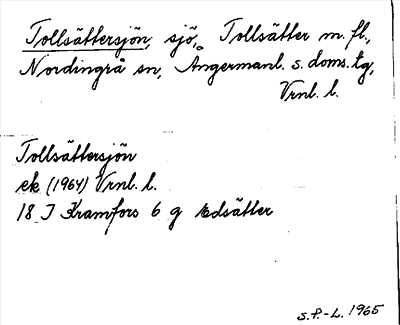 Tollsättersjön, sjö, Tollsätter m. fl.,
Nordingrå sn, Ångermanl. s. doms. tg,
Vrnl. l.
Tollsättersjön
ek (1964) Vrnl. l.
18 J Kramfors 6 g Edsätter
S.P.-L. 1965